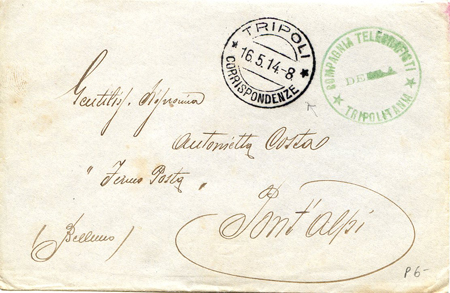 TRIPOLI
16.5.14.-8
CORRISPONDENZE
COMPAGNIA TELEGRAFISTI
DELLA
TRIPOLITANIA
Gentilis. Signorina
Antonietta Costa
"Fermo Posta"
Pont'Alpi
(Belluno)
P 6-